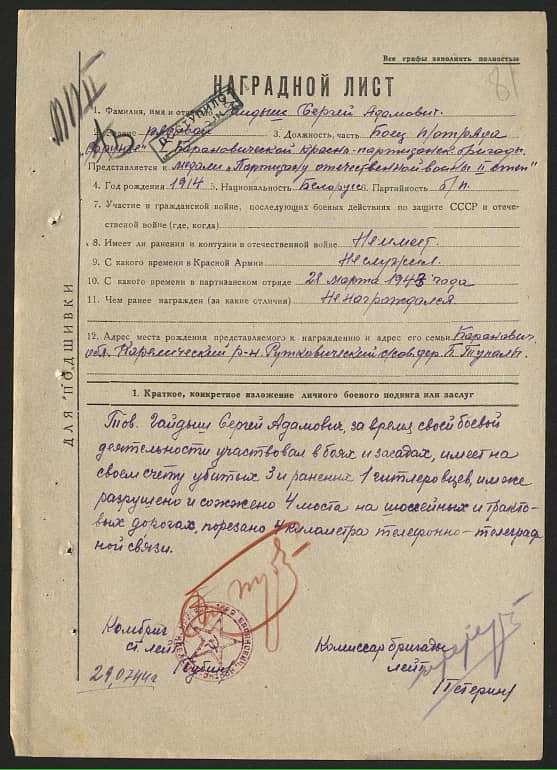 Все графы заполнять полностью
81
НАГРАДНОЙ ЛИСТ
1. Фамилия, имя и Гайдыш Сергей Адамович.
ПОСТУПИЛО
2. Звание рядовой 3. Должность, часть Боец п/отряда
Барановической краснопартизанской бригады.
Представляется к медали „Партизану отечественной войны II степ"
4. Год рождения 1914 5. Национальность Белорус 6. Партийность б/п.
7. Участие в гражданской войне, последующих боевых действиях по защите СССР и отече-
ственной войне (где, когда)
8. Имеет ли ранения и контузии в отечественной войне Не имеет.
9. С какого времени в Красной Армии Не служил.
10. С какого времени в партизанском отряде 28 марта 1943 года
11. Чем ранее награжден (за какие отличия) Не награждался
12. Адрес места рождения представляемого к награждению и адрес его семьи Баранович.
обл. Кареличский р-н. Рутковичский с/сов. дер. Б.
ДЛЯ ПОДШИВКИ
1. Краткое, конкретное изложение личного боевого подвига или заслуг
Тов. Гайдыш Сергей Адамович, за время своей боевой
деятельности участвовал в боях и засадах, имеет на
своем счету убитых 3 и ранених 1 гитлеровцев, им же
разрушено и сожжено 4 моста на шоссейных и тракто-
вых дорогах, порезано 4 километра телефонно-телеграф
ной связи.
Комбриг
ст. лейт.
Комиссар бригады
лейт.
29.07.44г